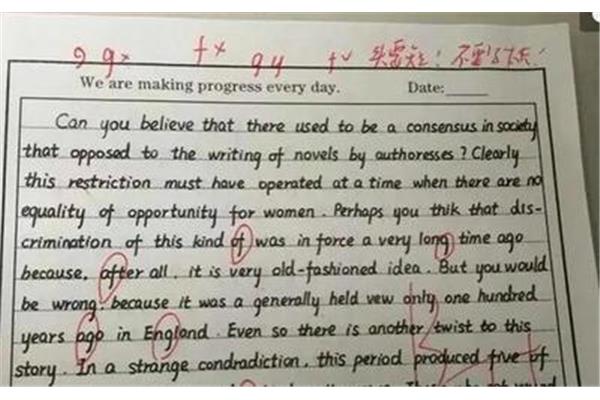 9 g× f× 9 y f√
We are making progress every day. Date:
Can you believe that there used to be a consensus in society
that opposed to the writing of novels by authoresses? Clearly
this restriction must have operated at a time when there are no
equality of opportunity for women. Perhaps you thik that dis-
crimination of this kind of was in force a very long time ago
because, after all, it is very old-fashioned idea. But you would
be wrong, because it was a generally held vew only one hundred
years ago in England. Even so there is another twist to this
story. In a strange condradiction, this period produced five of